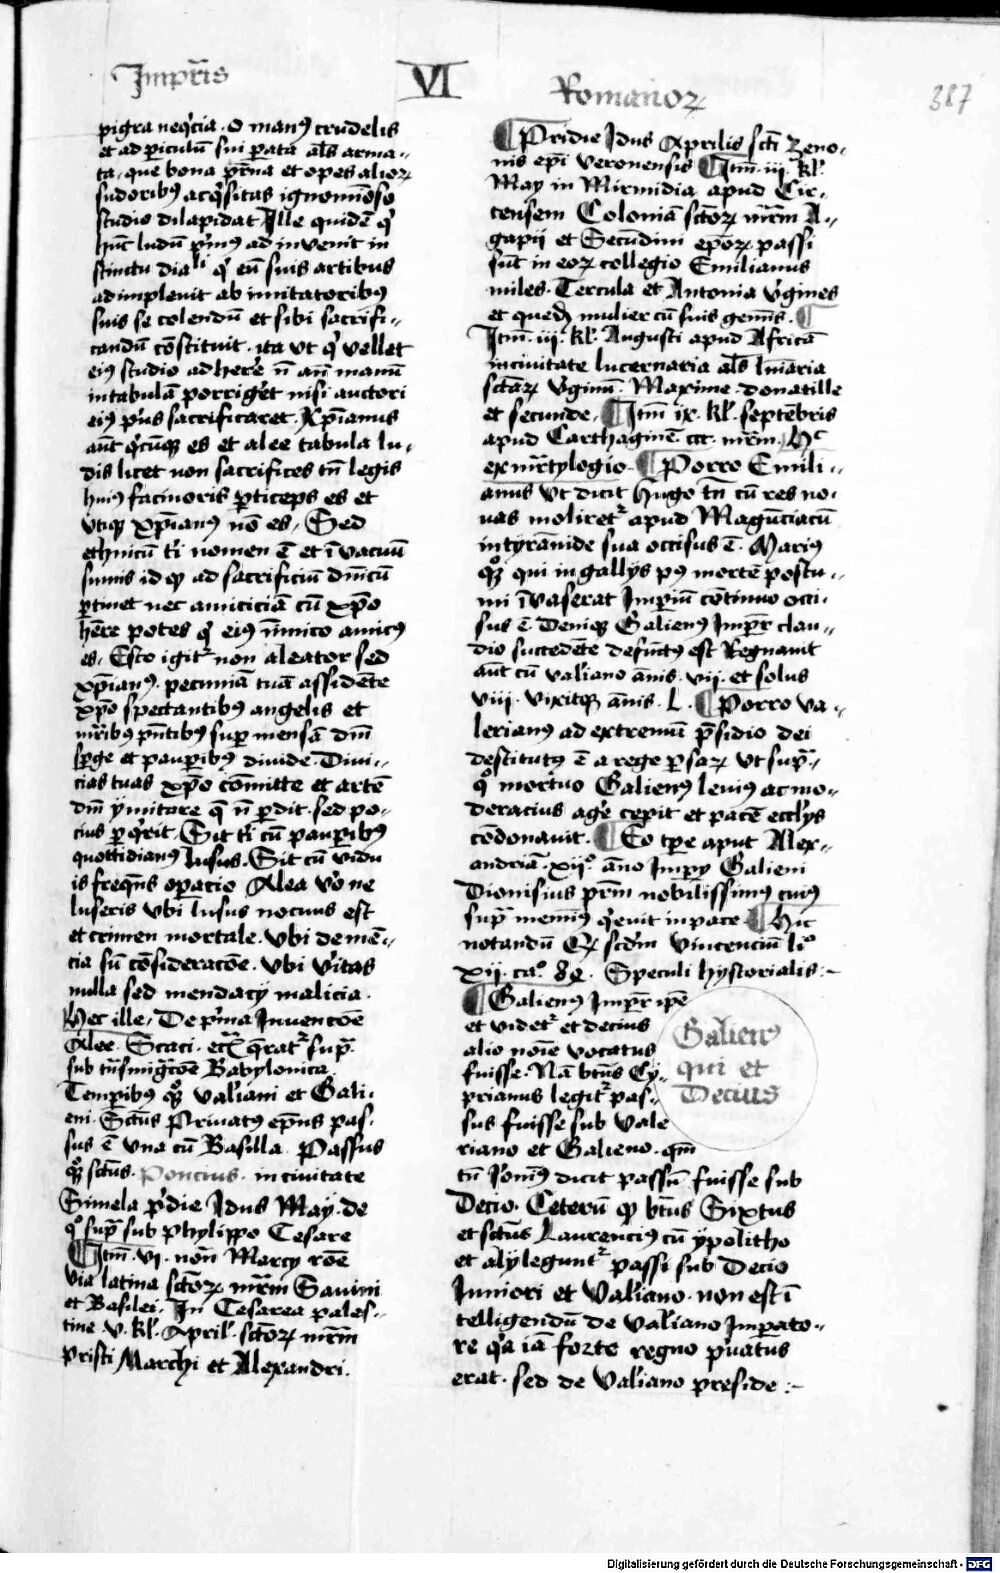 Imp̄ris
VI
Romanoꝝ
387
pigra neq̄cia · O manꝰ crudelis
et ad ꝑiculū sui ꝑata al̄s arma-
ta · que bona pr̄na et opes alioꝝ
sudoribꝰ acq̄sitas ignomīoso
studio dilapidat Ille quidē q̄
hūc ludū p̄mꝰ ad invenit in
stinctu diaᵇˡⁱ q̄ eū suis artibus
adimplevit ab imitatoribꝰ
suis se colendū et sibi sacrifi-
candū cōstituit · ita vt q̄ vellet
eiꝰ studio adhere n̄ an̄ manū
in tabulā porriget nisi auctori
eiꝰ pꝰs sacrificaret · Xp̄ianus
aūt q̄cūqꝫ es et alee tabula lu-
dis licet non sacrifices tn̄ legis
huiꝰ facinoris ꝑticeps es et
vtiqꝫ xp̄ianꝰ nō es · Sed
ethnicū ti nomen ē et ī vacuū
sumis id qꝫ ad sacrificiū dn̄icū
ꝑtinet nec amiciciā cū xp̄o
hēre potes q̄ eiꝰ īmico amicꝰ
es · Esto igitʳ non aleator sed
xp̄ianꝰ · pecuniā tuā assidēte
xp̄o spectantibꝰ angelis et
mr̄ibus pn̄tibꝰ super mensā dn̄i
sp̄ge et pauꝑibꝰ divide · Divi-
cias tuas xp̄o cōmitte et artē
dn̄i ymitare q̄ n̄ ꝑdit · sed po-
cius ꝑ q̄rit · Sit ti cū pauꝑibꝰ
quottidianꝰ lusus · Sit cū vidu
is freq̄ns oꝑatio Alea v̄o ne
luseris vbi lusus nocuus est
et crimen mortale · vbi demē-
cia sū cōsideracōe · vbi v̄itas
nulla sed mendacij malicia ·
Hec ille · De p̄ma Invencōe
Alee · Scaci · etc̄ q̄ratʳ supᵃ
sub tn̄smigr̄cōe Babylonica
Temꝑibꝰ qꝫ̊ Valiani et Gali-
eni · Sctūs Privatꝰ ep̄us pas-
sus ē vna cū Basilla · Passus
qꝫ̊ sctūs · Poncius · in civitate
Simela p̄die Idus May · de
q̊ supᵃ sub Phylippo Cesare
¶ Itm̄ · vi · non̄ Marcy rōe
via latina sctōꝝ mr̄m Savini
et Basilei · In Cesarea pales-
tine · v · kl̄ April̄ · sctōꝝ mr̄m
Pristi Marchi et Alexandri ·
¶ Pridie Idus Aprilis scti Zeno-
nis epi veronensis ¶ Itm̄ · iij · kl̄
May in Mirmidia apud Cir-
tensem Coloniā sctōꝝ mr̄m A-
gapij et Secūdini epōꝝ passi
sūt in eoꝝ collegio Emilianus
miles · Tercula et Antonia v̄gines
et quedā mulier cū suis gemīs · ¶
Itm̄ · iij · kl̄ · Augusti apud Africā
in civitate lucernaria al̄s
sctāꝝ v̄ginū · Maxime · donatille
et secunde · ¶ Itm̄ ix · kl̄ · septēbris
apud Carthaginē · ccc · mr̄m · Hᶜ
ex mr̄tylogio · ¶ Porro Emili-
anus vt dicit Hugo tn̄ cū res no-
vas moliretʳ apud Magūciacū
in tyrānide sua occisus ē · Mariꝰ
qꝫ̊ qui in gallijs pꝰ mortē postu-
mi īvaserat Imperiū cōtinuo occi-
sus ē Deniqꝫ Galienꝰ Impr̄ clau-
dio succedēte defūctꝰ est Regnavit
aūt cū valiano ānis · vij · et solus
viij · vixitqꝫ ānis · L · ¶ Porro Va-
lerianꝰ ad extremū p̄sidio dei
destitutꝰ ē a rege ꝑsaꝝ vt supᵃ-
q̊ mortuo Galienꝰ leniꝰ ac mo-
deracius age cepit et pacē ecclijs
cōdonavit · ¶ Eo tꝑe aput Alex-
andriā · xij̊ · āno Impꝑy Galieni
Dionisius prm̄ nobilissimꝰ cuiꝰ
supᵃ meminꝰ q̄evit in pace ¶ Hic
notandū scdm̄ Vincenciū li̊
xij · cå · 8Q · Speculi hystorialis :-
¶ Galienꝰ Impr̄ ip̄e
et videtʳ et decius
alio noīe vocatus
fuisse · Nā btūs Cy-
prianus legitʳ pas-
sus fuisse sub Vale
riano et Galieno · qm̄
tn̄ Iᵉronimꝰ dicit passū fuisse sub
Decio · Ceterū qꝫ btūs Sixtus
et sctūs Laurenciꝰ cū ypolitho
et alij leguntʳ passi sub Decio
Iuniori et Valiano · non est ī
telligendū de Valiano Imꝑato-
re q̄a iā forte regno p̄vatus
erat · sed de Valiano preside :-
Galienꝰ
qui et
Decius
Digitalisierung gefördert durch die Deutsche Forschungsgemeinschaft - DFG